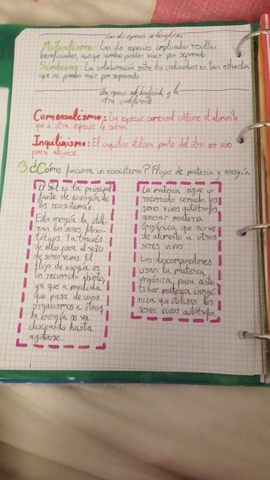 Las dos especies se benefician
Mutualismo: Las dos especies implicadas resultan
beneficiadas, aunque ambas pueden vivir por separado
Simbiosis: La colaboración entre los individuos es tan estrecha
que no pueden vivir por separado
Una especie sale beneficiada y la
otra indiferente
Comensalismo: La especie comensal obtiene el alimento
que a otra especie le sobra.
Inquilinismo: El inquilino utiliza parte del otro ser vivo
para alojarse.
3 ¿Cómo funciona un ecosistema? Flujos de materia y energía
El sol es la principal
fuente de energía de
los ecosistemas.
Esta energía la utili-
zan los seres
y a través
de ellos pasa al resto
de seres vivos. El
flujo de energía es
un recorrido abierto,
ya que a medida
que pasa de unos
organismos a otros,
la energía se va
disipando hasta
agotarse.
La materia sigue un
recorrido cerrado. Los
seres vivos autótrofos
generan materia
orgánica que sirve
de alimento a otros
seres vivos.
Los descomponedores
usan la materia
orgánica, para
materia inorgá-
nica que utilizan los
seres vivos autótrofos.